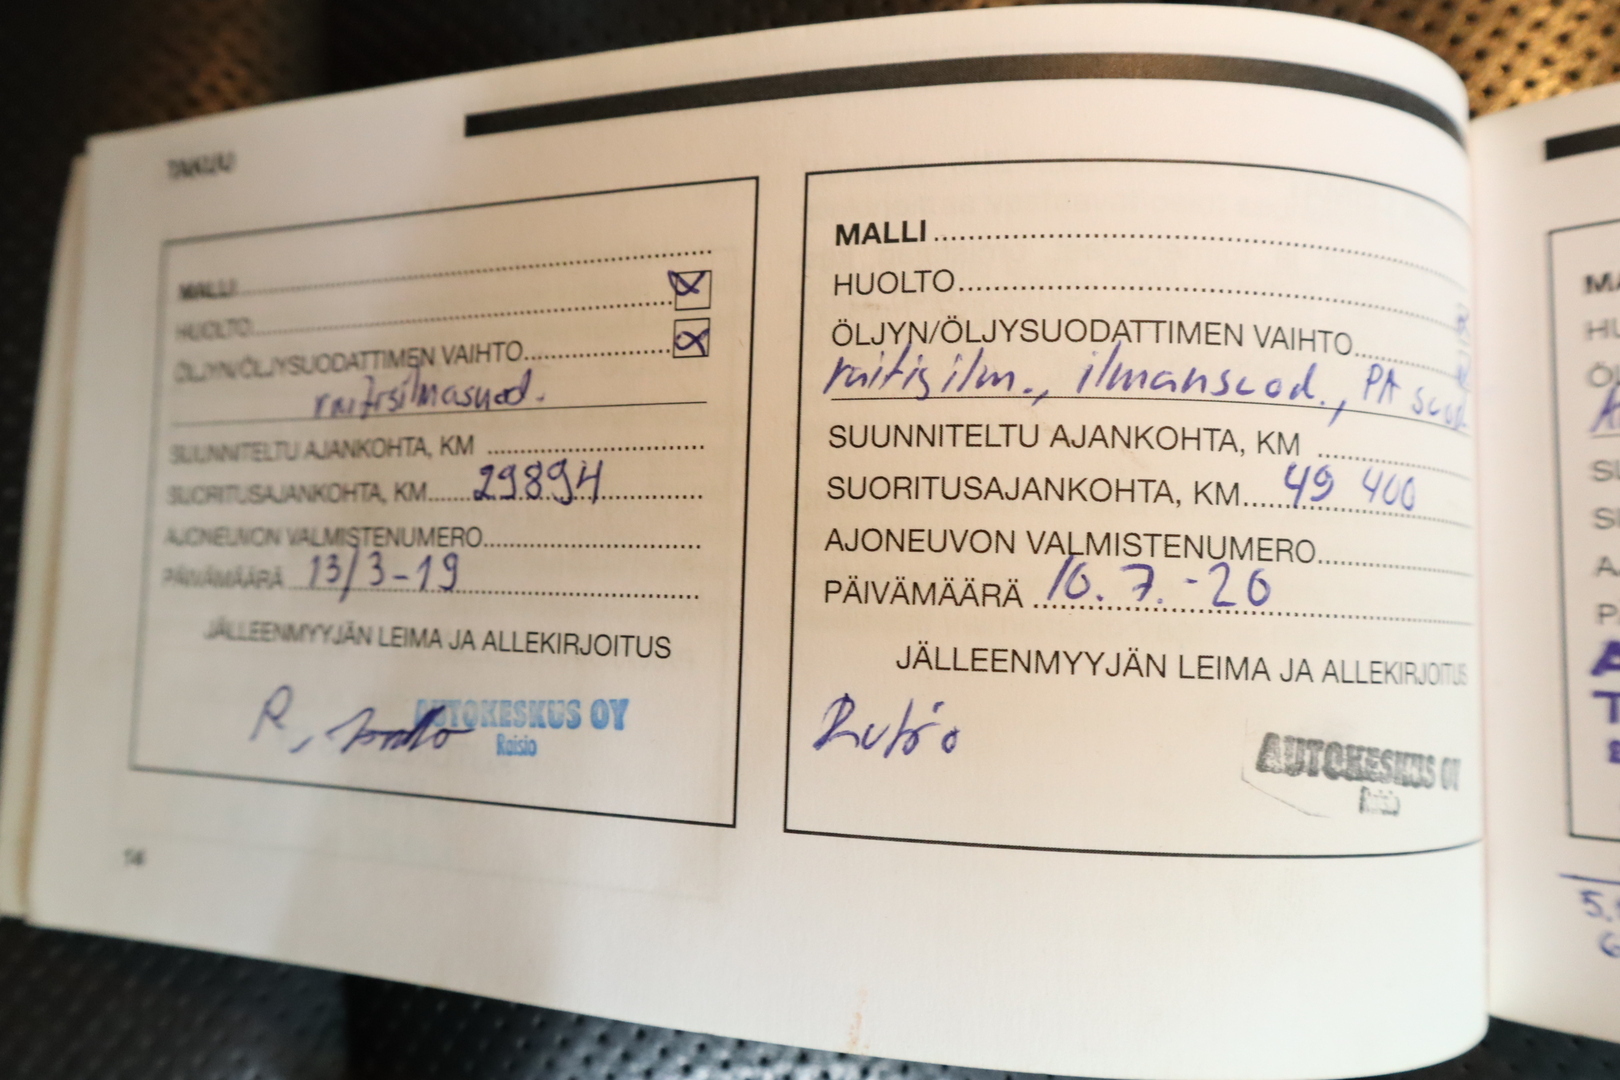 TAKUU
MALLI
HUOLTO
ÖLJYN/ÖLJYSUODATTIMEN VAIHTO
raitisilmasuod.
SUUNNITELTU AJANKOHTA, KM
SUORITUSAJANKOHTA, KM 29894
AJONEUVON VALMISTENUMERO
PÄIVÄMÄÄRÄ 13/3-19
JÄLLEENMYYJÄN LEIMA JA ALLEKIRJOITUS
R,
AUTOKESKUS OY
Raisio
14
MALLI
HUOLTO
ÖLJYN/ÖLJYSUODATTIMEN VAIHTO
raitisilm., ilmansuod., PA suod
SUUNNITELTU AJANKOHTA, KM
SUORITUSAJANKOHTA, KM 49 400
AJONEUVON VALMISTENUMERO
PÄIVÄMÄÄRÄ 10.7.-20
JÄLLEENMYYJÄN LEIMA JA ALLEKIRJOITUS
AUTOKESKUS OY
Raisio